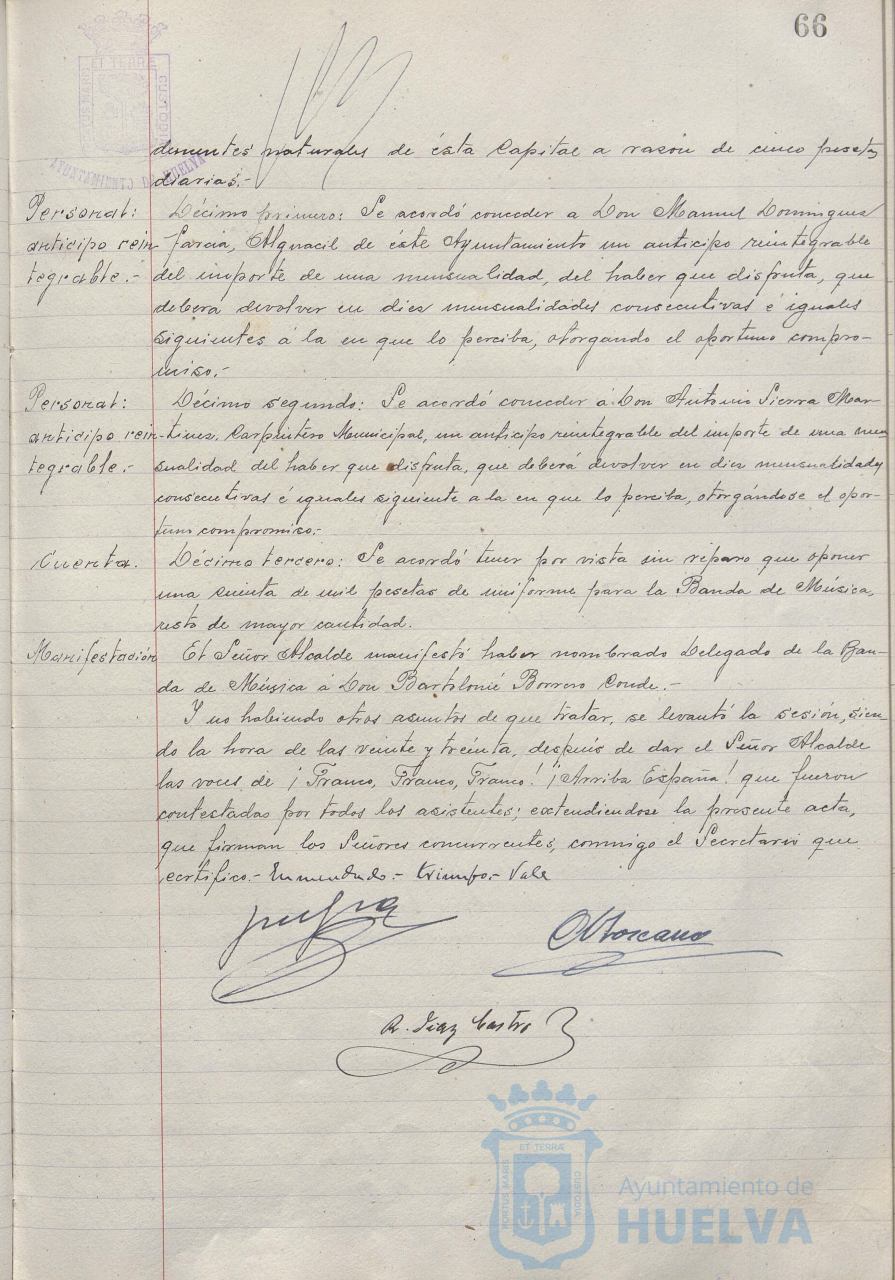 66
PORTUS MARIS ET TERRÆ CUSTODIA
AYUNTAMIENTO DE HUELVA
dementes naturales de ésta Capital a razón de cinco pesetas
diarias.-
Personal: anticipo reintegrable.-
Décimo primero: Se acordó conceder a Don Manuel Domingues
García, Alguacil de éste Ayuntamiento un anticipo reintegrable
del importe de una mensualidad, del haber que disfruta, que
deberá devolver en diez mensualidades consecutivas é iguales
siguientes á la en que lo perciba, otorgando el oportuno compro-
miso.-
Personal: anticipo reintegrable.-
Décimo segundo: Se acordó conceder á Don Antonio Sierra Mar-
tines, Carpintero Municipal, un anticipo reintegrable del importe de una men
sualidad del haber que disfruta, que deberá devolver en diez mensualidades
consecutivas é iguales siguiente a la en que lo perciba, otorgándose el opor-
tuno compromiso.-
Cuenta.
Décimo tercero: Se acordó tener por vista sin reparo que oponer
una cuenta de mil pesetas de uniforme para la Banda de Música,
resto de mayor cantidad.
Manifestación
El Señor Alcalde manifestó haber nombrado Delegado de la Ban-
da de Música á Don Bartolomé Borrero Conde.-
Y no habiendo otros asuntos de que tratar, se levantó la sesión, sien-
do la hora de las veinte y treinta, después de dar el Señor Alcalde
las voces de ¡Franco, Franco, Franco! ¡Arriba España! que fueron
contestadas por todos los asistentes; extendiendose la presente acta,
que firman los Señores concurrentes, conmigo el Secretario que
certifico.- Enmendado.- triunfo.- Vale
R. Díaz Castro
PORTUS MARIS ET TERRÆ CUSTODIA
Ayuntamiento de
HUELVA